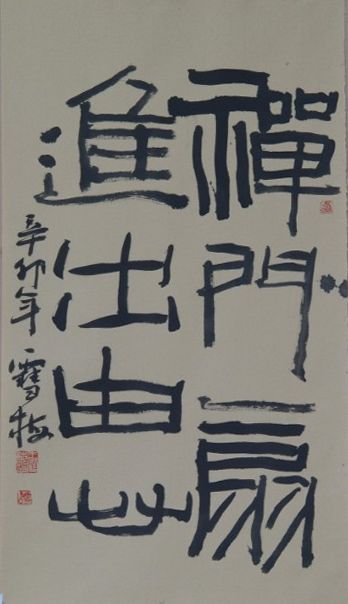 禪門一扇
進出由心
辛卯年 雪梅